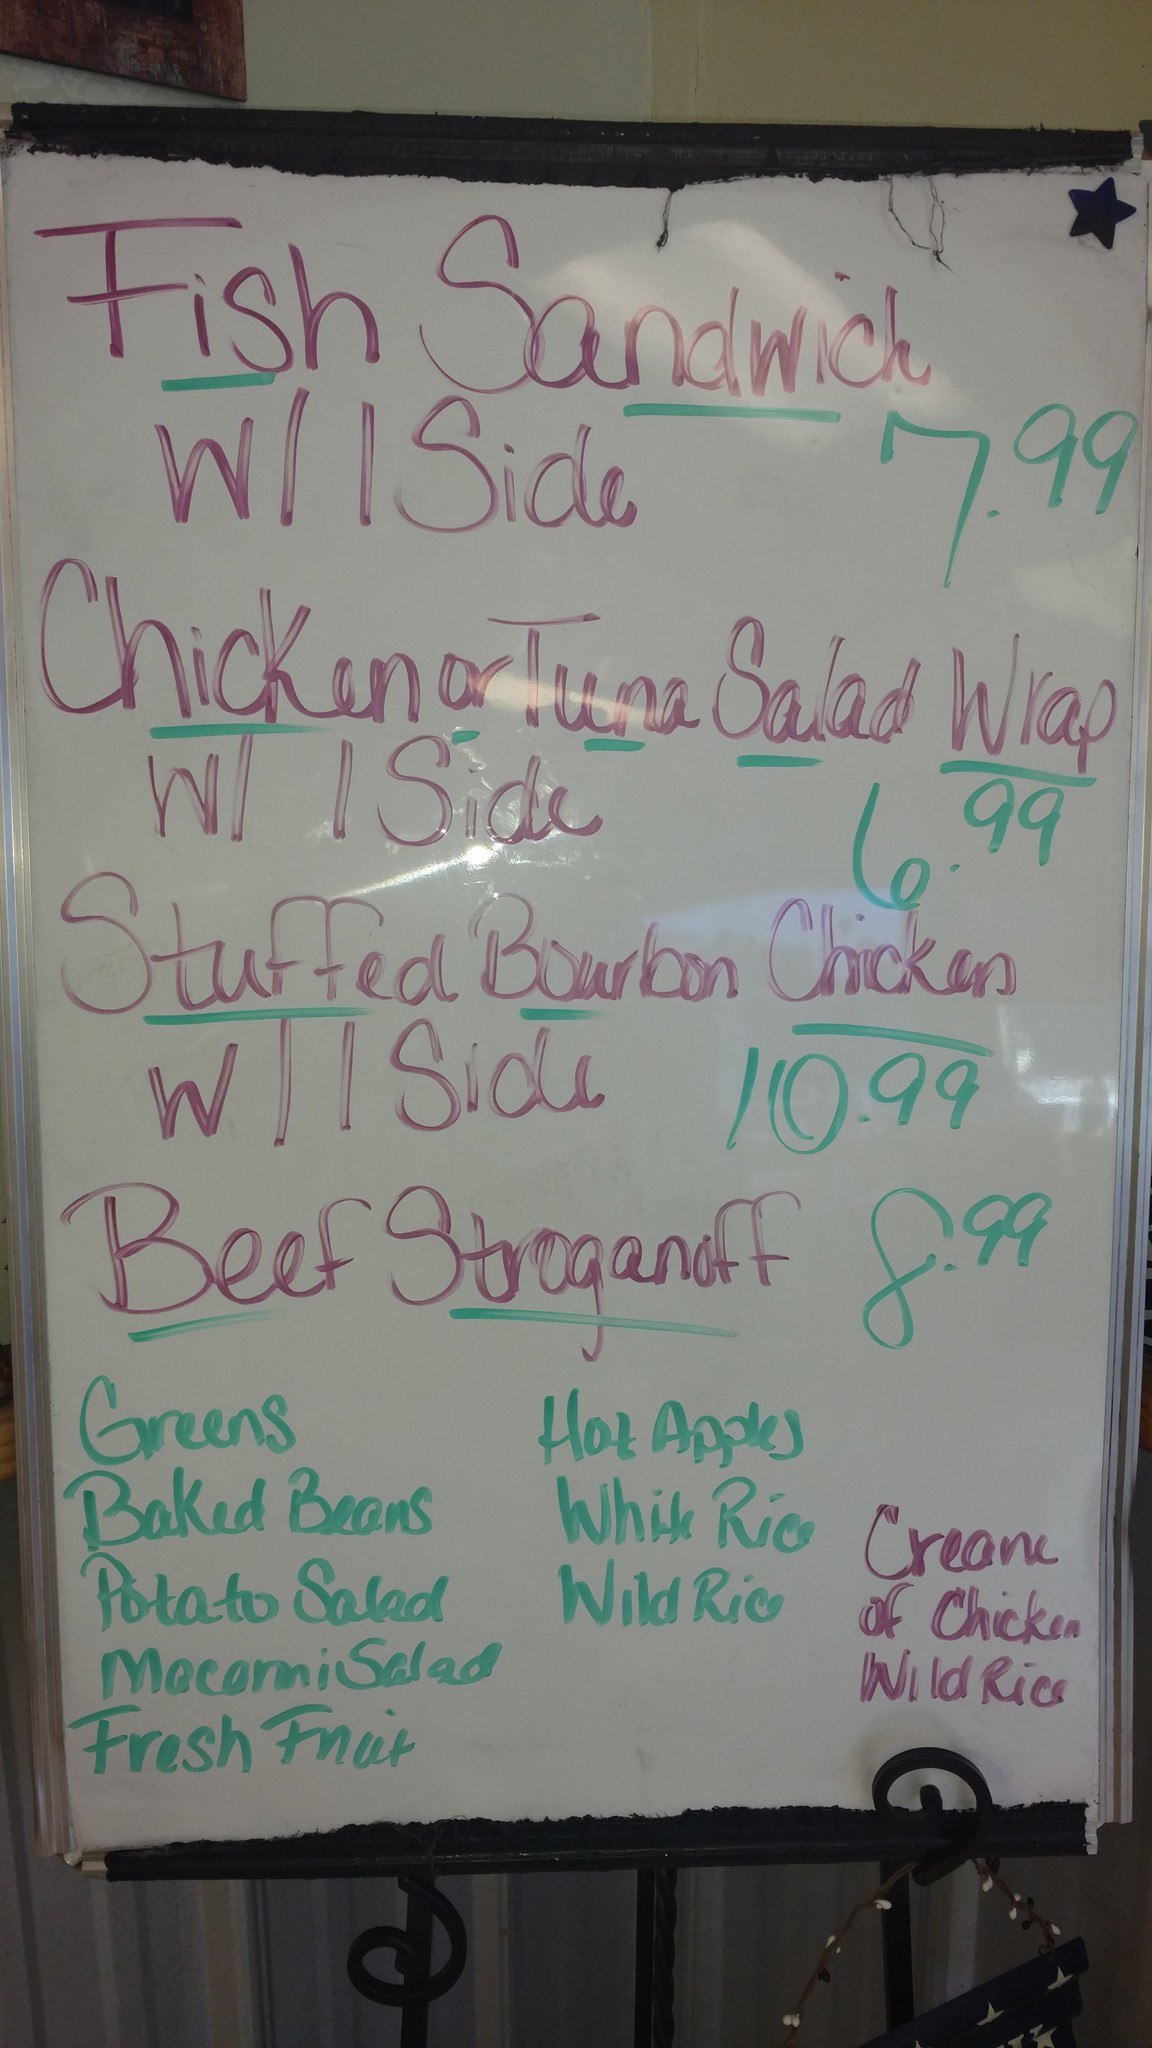 Fish Sandwich
W/ 1 Side 7.99
Chicken or Tuna Salad Wrap
W/ 1 Side 6.99
Stuffed Bourbon Chicken
W/ 1 Side 10.99
Beef Stroganoff 8.99
Greens
Baked Beans
Potato Salad
Macaroni Salad
Fresh Fruit
Hot Apples
White Rice
Wild Rice
Cream
of Chicken
Wild Rice